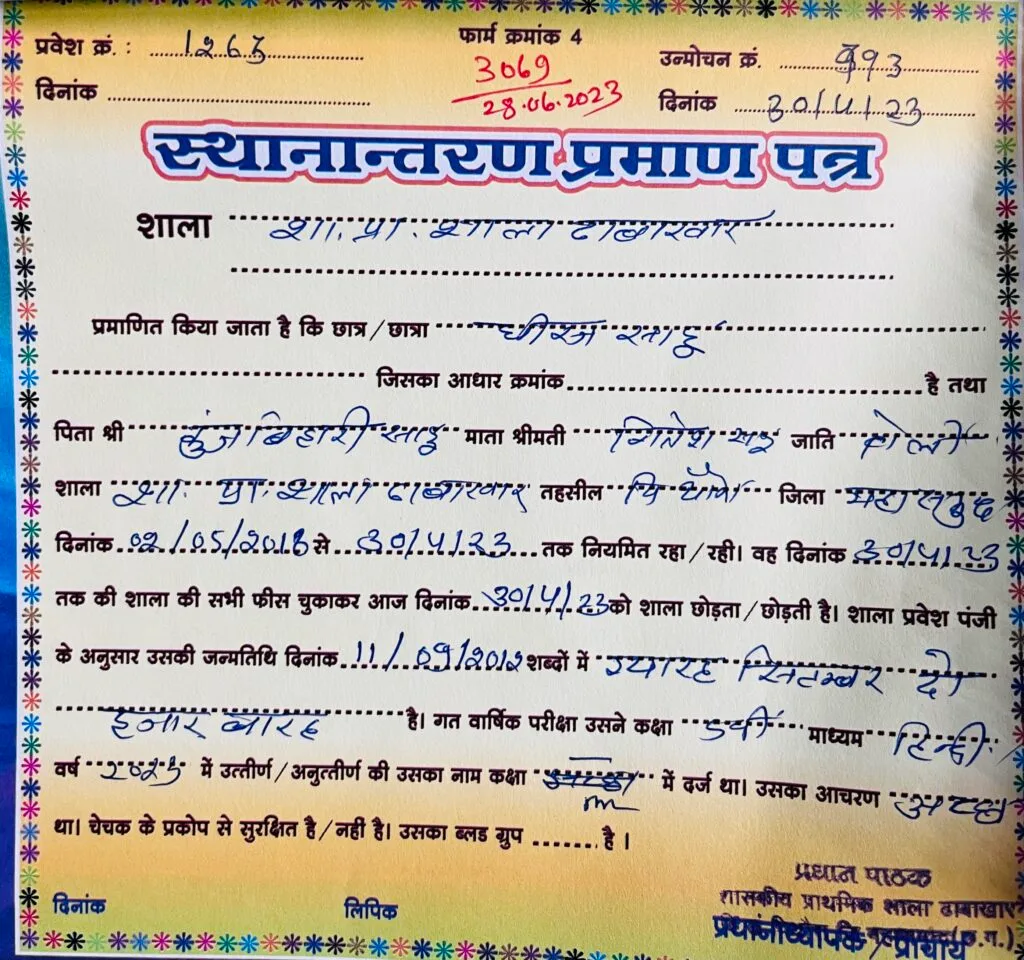 प्रवेश क्रं. : 1263 फार्म क्रमांक 4 उन्मोचन क्रं. 793
3069
दिनांक 28.06.2023 दिनांक 30/4/23
स्थानान्तरण प्रमाण पत्र
शाला शा. प्रा. शाला ढाबाखार
प्रमाणित किया जाता है कि छात्र / छात्रा धीरज साहू
जिसका आधार क्रमांक है तथा
पिता श्री कुंजबिहारी साहू माता श्रीमती साहू जाति तेली
शाला शा. प्रा. शाला ढाबाखार तहसील पिथौरा जिला महासमुंद
दिनांक 02/05/2018 से 30/4/23 तक नियमित रहा / रही। वह दिनांक 30/4/23
तक की शाला की सभी फीस चुकाकर आज दिनांक 30/4/23 को शाला छोड़ता / छोड़ती है। शाला प्रवेश पंजी
के अनुसार उसकी जन्मतिथि दिनांक 11/09/2012 शब्दों में ग्यारह सितम्बर दो
हजार बारह है। गत वार्षिक परीक्षा उसने कक्षा 5वीं माध्यम हिन्दी
वर्ष 2023 में उत्तीर्ण / अनुत्तीर्ण की उसका नाम कक्षा में दर्ज था। उसका आचरण अच्छा
था। चेचक के प्रकोप से सुरक्षित है / नही है। उसका ब्लड ग्रुप है ।
प्रधान पाठक
शासकीय प्राथमिक शाला ढाबाखार
दिनांक लिपिक प्रधानाध्यापक / प्राचार्य (छ.ग.)